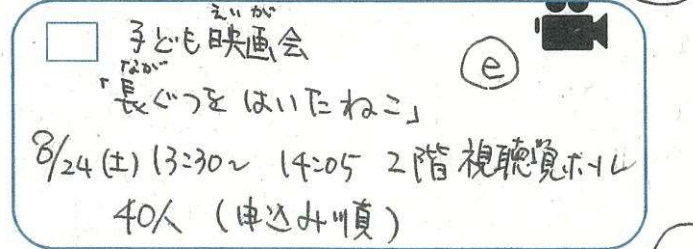 えいが
子ども映画会
e
なが
「長ぐつを はいたねこ」
8/24(土) 13:30~ 14:05 2階 視聴覚ホール
40人 (申込み順)